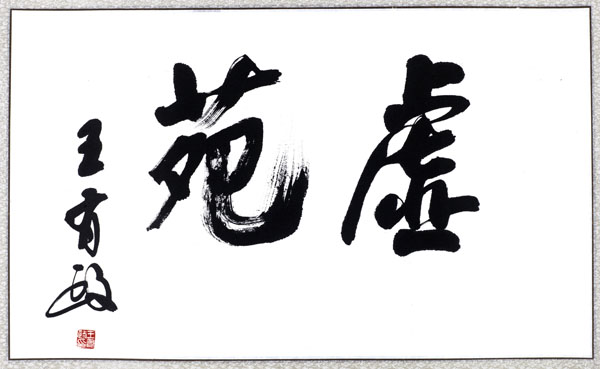 虚苑
王有政